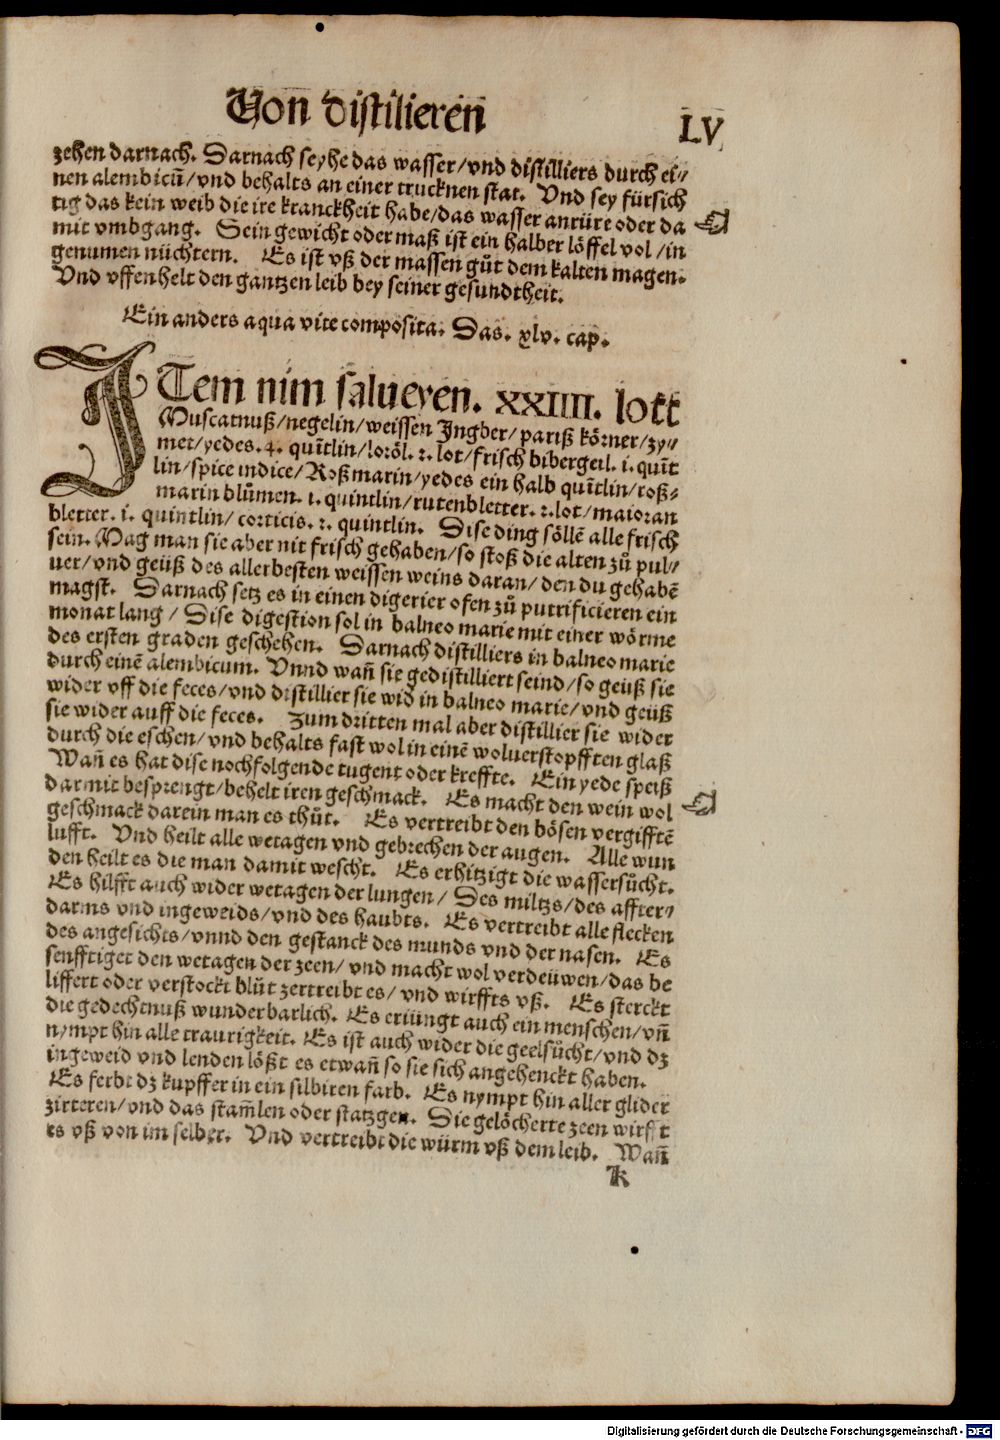 Von distilieren
LV
zehen darnach. Darnach seyhe das wasser/vnd distilliers durch ei⸗
nen alembicū/vnd behalts an einer trucknen stat. Vnd sey fürsich
tig das kein weib die ire kranckheit habe/das wasser anrüre oder da
mit vmbgang. Sein gewicht oder maß ist ein halber löffel vol/in
genumen nüchtern. Es ist vß der massen gůt dem kalten magen.
Vnd vffenhelt den gantzen leib bey seiner gesundtheit.
Ein anders aqua vite composita. Das. xlv. cap.
ITem nim salueyen. XXIIII. lott
Muscatnuß/negelin/weissen Jngber/pariß körner/zy⸗
met/yedes. 4. quītlin/loröl. 2. lot/frisch bibergeil. i. quīt
lin/spice indice/Roßmarin/yedes ein halb quītlin/roß⸗
marin blůmen. i. quintlin/rutenbletter. 2. lot/maioran
bletter. i. quintlin/corticis. 2. quintlin. Dise ding söllē alle frisch
sein. Mag man sie aber nit frisch gehaben/so stoß die alten zů pul⸗
uer/vnd geüß des allerbesten weissen weins daran/den du gehabē
magst. Darnach setz es in einen digerier ofen zů putrificieren ein
monat lang/Dise digestion sol in balneo marie mit einer wörme
des ersten graden geschehen. Darnach distilliers in balneo marie
durch einē alembicum. Vnnd wañ sie gedistilliert seind/so geüß sie
wider vff die feces/vnd distillier sie wid in balneo marie/vnd geüß
sie wider auff die feces. Zum dritten mal aber distillier sie wider
durch die eschen/vnd behalts fast wol in einē woluerstopfften glaß
Wañ es hat dise nochfolgende tugent oder kreffte. Ein yede speiß
darmit besprengt/behelt iren geschmack. Es macht den wein wol
geschmack darein man es thůt. Es vertreibt den bösen vergifftē
lufft. Vnd heilt alle wetagen vnd gebrechen der augen. Alle wun
den heilt es die man damit wescht. Es erhitzigt die wassersůcht.
Es hilfft auch wider wetagen der lungen/Des miltzs/des affter⸗
darms vnd ingeweids/vnd des haubts. Es vertreibt alle flecken
des angesichts/vnnd den gestanck des munds vnd der nasen. Es
senfftiget den wetagen der zeen/vnd macht wol verdeüwen/das be
liffert oder verstockt blůt zertreibt es/vnd wirffts vß. Es sterckt
die gedechtnuß wunderbarlich. Es eriüngt auch ein menschen/vñ
nympt hin alle traurigkeit. Es ist auch wider die geelsůcht/vnd dz
ingeweid vnd lenden lößt es etwañ so sie sich angehenckt haben.
Es ferbt dz kupffer in ein silbiren farb. Es nympt hin aller glider
zitteren/vnd das stam̄len oder statzgen. Die gelöcherte zeen wirfft
es vß von im selber. Vnd vertreibt die würm vß dem leib. Wañ
K
Digitalisierung gefördert durch die Deutsche Forschungsgemeinschaft - DFG